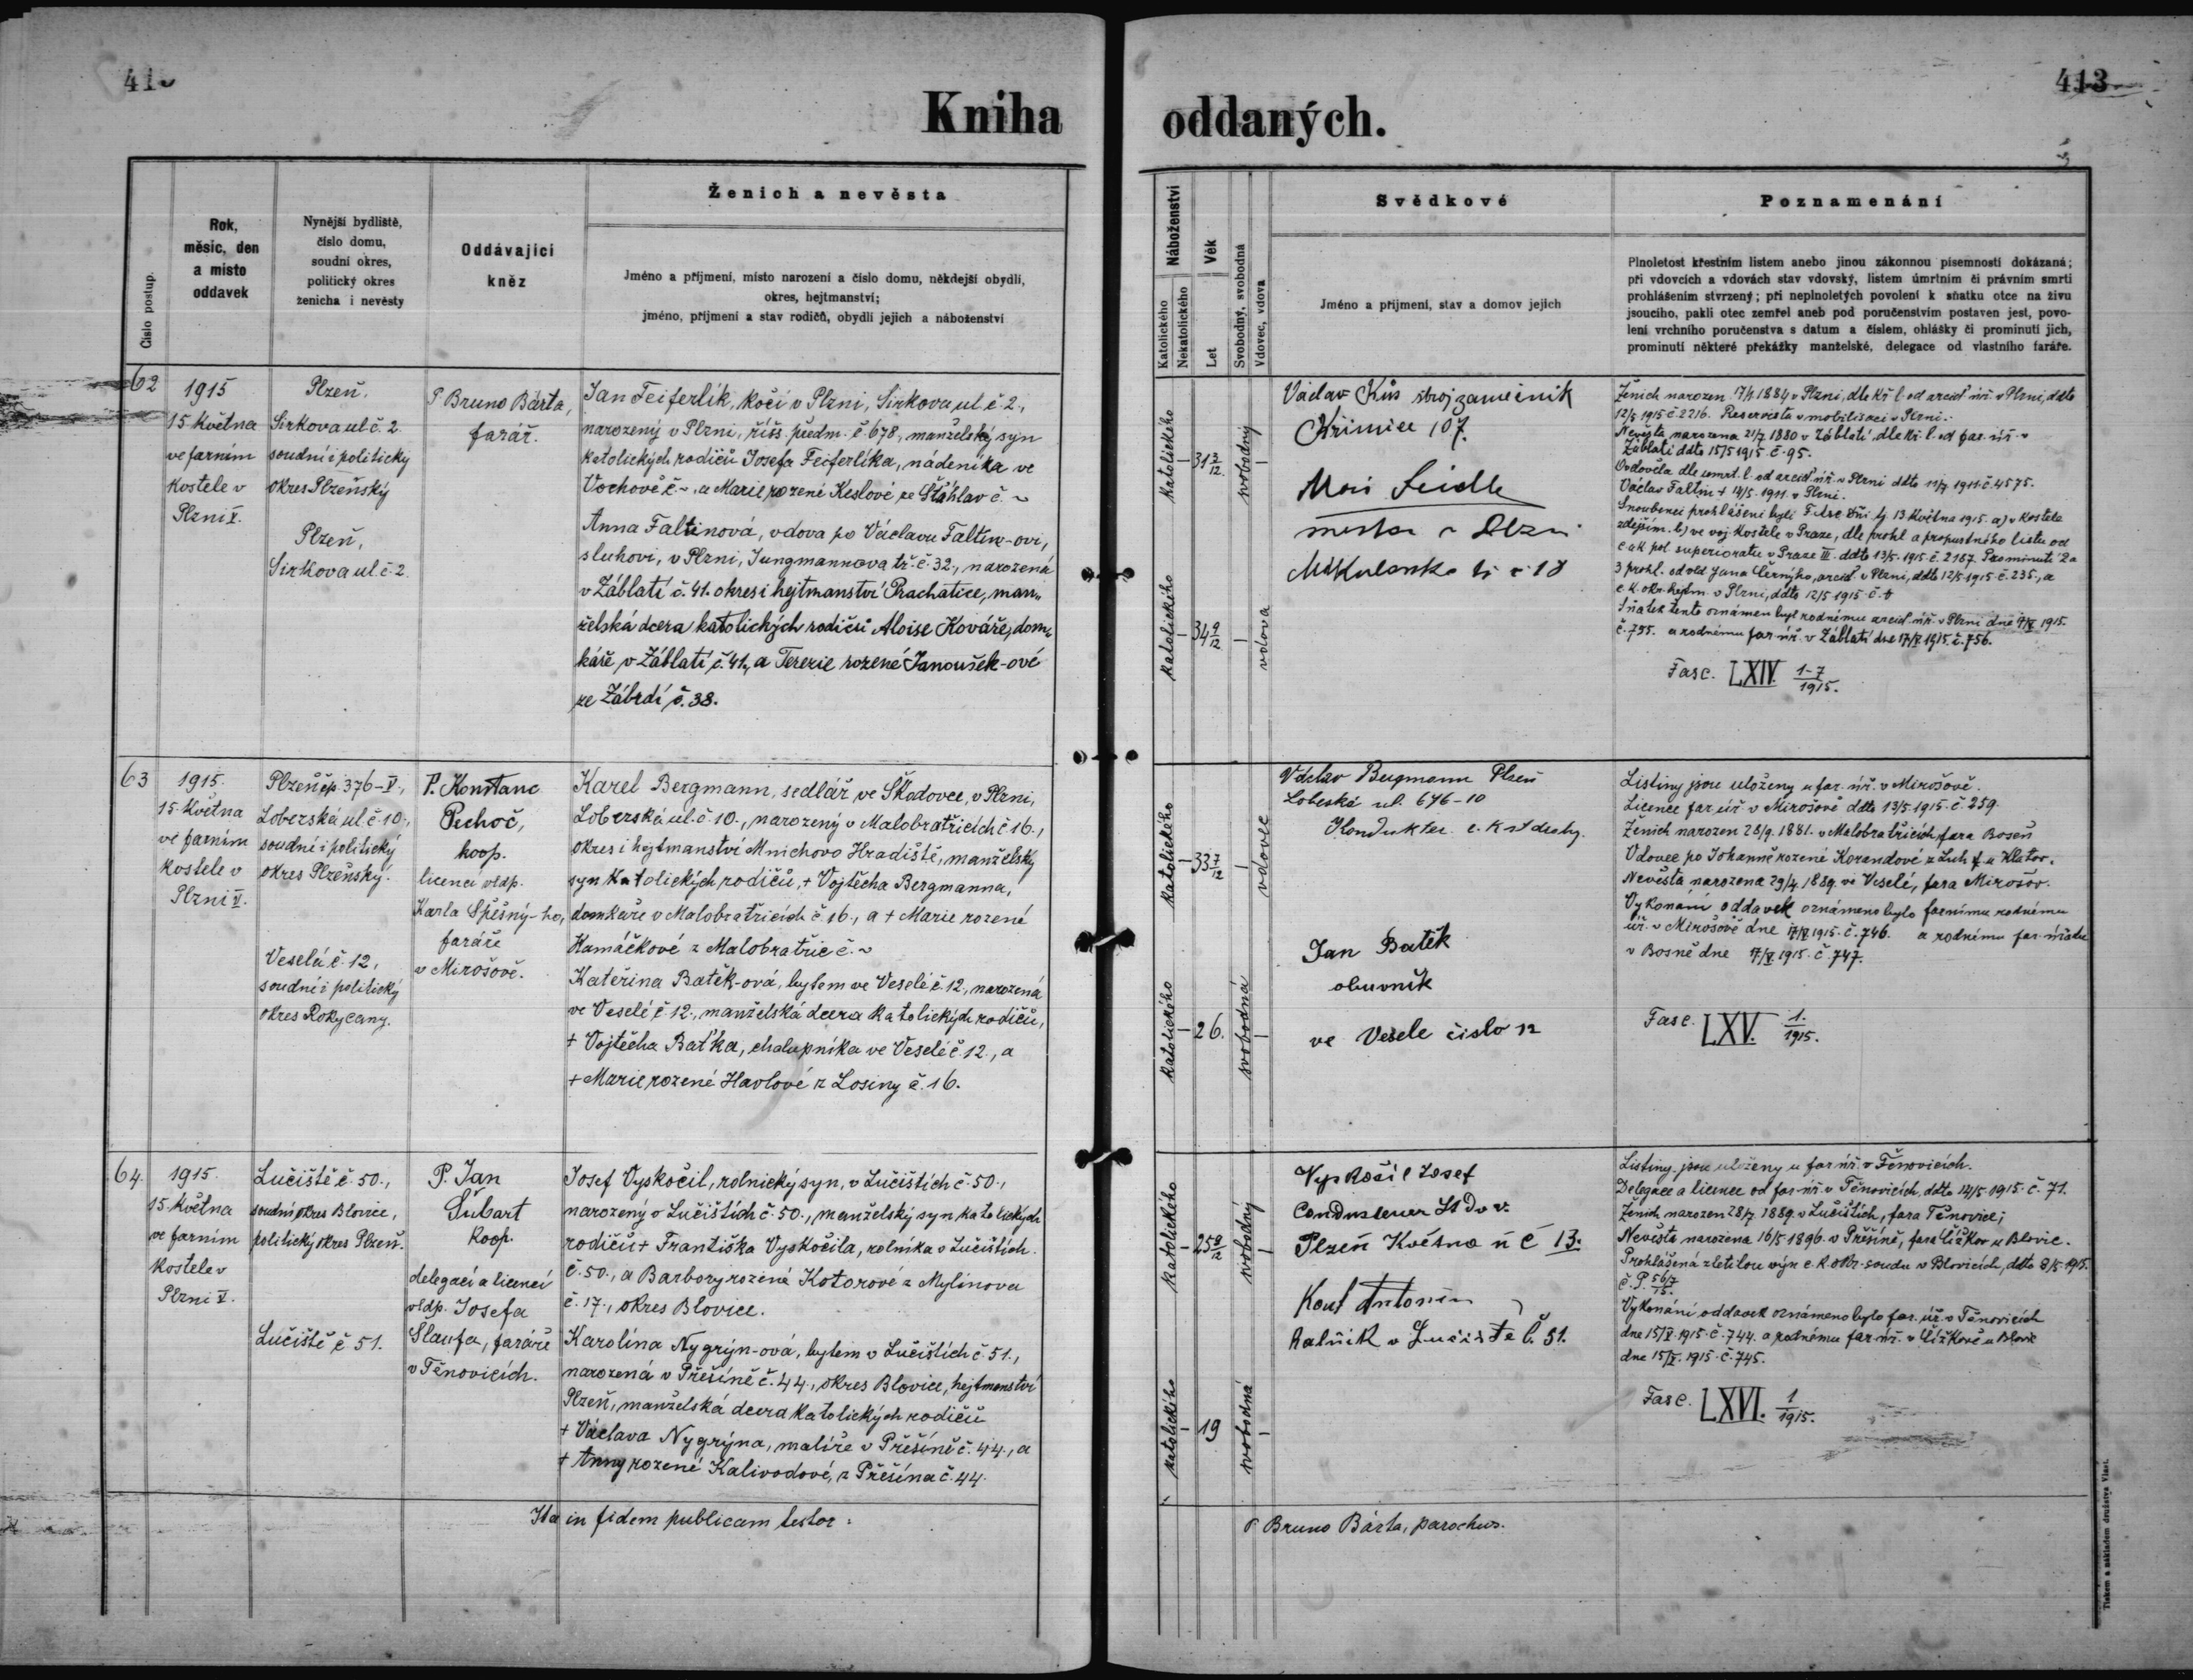 413
Kniha oddaných.
Číslo postup.
Rok,
měsíc, den
a místo
oddavek
Nynější bydliště,
číslo domu,
soudní okres,
politický okres
ženicha i nevěsty
Oddávající
kněz
Ženich a nevěsta
Jméno a příjmení, místo narození a číslo domu, někdejší obydlí,
okres, hejtmanství;
jméno, příjmení a stav rodičů, obydlí jejich a náboženství
Náboženství
Katolického
Nekatolického
Věk
Let
Svobodný, svobodná
Vdovec, vdova
Svědkové
Jméno a příjmení, stav a domov jejich
Poznamenání
Plnoletost křestním listem anebo jinou zákonnou písemností dokázaná;
při vdovcích a vdovách stav vdovský, listem úmrtním či právním smrti
prohlášením stvrzený; při neplnoletých povolení k sňatku otce na živu
jsoucího, pakli otec zemřel aneb pod poručenstvím postaven jest, povo-
lení vrchního poručenstva s datum a číslem, ohlášky či prominutí jich,
prominutí některé překážky manželské, delegace od vlastního faráře.
62
1915
15 května
ve farním
kostele v
Plzni V.
Plzeň,
Sirkova ul č. 2.
soudní i politický
okres Plzeňský
Plzeň,
Sirkova ul. č. 2
P Bruno Bárta,
farář.
Jan Feiferlík, kočí v Plzni, Sirkova ul. č 2.,
narozený v Plzni, říšs. předm. č. 678., manželský syn
katolických rodičů Josefa Feiferlíka, nádeníka ve
Vochově č ~, a Marie rozené Keslové ze Štáhlav č. ~
Anna Faltinová, vdova po Václavu Faltin-ovi,
sluhovi, v Plzni, Jungmannova tř. č. 32., narozená
v Záblatí č. 41. okres i hejtmanství Prachatice, man-
želská dcera katolických rodičů Aloise Kováře, dom-
káře v Záblatí č. 41., a Terezie rozené Janoušek-ové
ze Zábrdí č. 38.
katolického – 31 3/12 svobodný –
katolického – 34 9/12 – vdova
Václav Kůs stroj zámečník
Křimice 107.
Seidl
Ženich narozen 17/1 1884 v Plzni, dle kř l. od arciď úř. v Plzni, ddto
12/5 1915 č. 2216. Reservista v mobilisaci v Plzni.
Nevěsta narozena 21/7 1880 v Záblatí dle kř. l. od far. úř. v
Záblatí ddto 15/5 1915. č. 95.
Ovdověla dle úmrt. l. od arciď úř. v Plzni ddto 11/9 1911. č. 4575.
Václav Faltin + 14/5. 1911. v Plzni.
Snoubenci prohlášeni byli 13 května 1915. a) v kostele
zdejším. b) ve voj. kostele v Praze, dle prohl a propustného listu od
c. a k. pol superiorátu v Praze III. ddto 13/5. 1915. č. 2187. Prominutí 2 a
3 prohl. od vld Jana Černýho, arciď. v Plzni, ddto 12/5 1915. č. 235., a
c. k. okr. hejtm. v Plzni, ddto 12/5 1915. č.
Sňatek tento oznámen byl rodnému arciď úř. v Plzni dne 17/V 1915.
č. 755. a rodnému far. úř. v Záblatí dne 17/V 1915. č. 756.
Fasc. LXIV. 1-7/1915.
63
1915.
15. května
ve farním
kostele v
Plzni V.
Plzeň čp. 376-V.,
Lobezská ul. č 10.,
soudní i politický
okres Plzeňský.
Veselá č. 12,
soudní i politický
okres Rokycany.
P. Konstanc
Pechoč,
koop.
licencí vldp.
Karla Spěšný-ho,
faráře
v Mirošově.
Karel Bergmann, sedlář ve Škodovce, v Plzni,
Lobezská ul. č. 10., narozený v Malobratřicích č 16.,
okres i hejtmanství Mnichovo Hradiště, manželský
syn katolických rodičů, + Vojtěcha Bergmanna,
domkáře v Malobratřicích č. 16., a + Marie rozené
Hamáčkové z Malobratřic č. ~
Kateřina Batěk-ová, bytem ve Veselé č. 12., narozená
ve Veselé č 12., manželská dcera katolických rodičů,
+ Vojtěcha Baťka, chalupníka ve Veselé č. 12., a
+ Marie rozené Havlové z Losiny č. 16.
katolického – 33 7/12 – vdovec
katolického – 26. svobodná –
Václav Bergmann Plzeň
Lobezská ul. 646-10
Kondukter c. k st dráhy.
Jan Batěk
obuvník
ve Vesele číslo 12
Listiny jsou uloženy u far. úř. v Mirošově.
Licence far. úř. v Mirošově ddto 13/5. 1915. č. 259.
Ženich narozen 28/9. 1881. v Malobratřicích, fara Boseň
Vdovec po Johanně rozené Korandové z Luh u Klatov.
Nevěsta narozena 29/4. 1889. ve Veselé, fara Mirošov.
Vykonání oddavek oznámeno bylo farnímu rodnému
úř. v Mirošově dne 17/V 1915. č. 746. a rodnému far. úřadu
v Bosně dne 17/V 1915. č. 747.
Fasc. LXV. 1./1915.
64.
1915.
15. května
ve farním
kostele v
Plzni V.
Lučiště č. 50.,
soudní okres Blovice,
politický okres Plzeň.
Lučiště č 51.
P. Jan
Šubart
koop.
delegací a licencí
vldp. Josefa
Šlaufa, faráře
v Těnovicích.
Josef Vyskočil, rolnický syn, v Lučištích č. 50.,
narozený v Lučištích č. 50., manželský syn katolických
rodičů + Františka Vyskočila, rolníka v Lučištích.
č. 50., a Barbory rozené Kotorové z Mylínova
č. 17., okres Blovice.
Karolína Nygrýn-ová, bytem v Lučištích č. 51.,
narozená v Přešíně č. 44., okres Blovice, hejtmanství
Plzeň, manželská dcera katolických rodičů
+ Václava Nygrýna, malíře v Přešíně č. 44., a
+ Anny rozené Kalivodové, z Přešína č. 44.
katolického – 25 8/12 svobodný –
katolického – 19 svobodná –
Vyskočil Josef
Plzeň Květná ul č 13.
Kout Antonín
Ralník v Lučiště č. 51.
Listiny jsou uloženy u far. úř. v Těnovicích.
Delegace a licence od far. úř. v Těnovicích, ddto 14/5 1915. č. 71.
Ženich narozen 28/7. 1889. v Lučištích, fara Těnovice;
Nevěsta narozena 16/5 1896. v Přešíně, fara Čížkov u Blovic.
Prohlášená zletilou výn c. k. okr. soudu v Blovicích, ddto 8/5 1915.
č. P. 56/7 15.
Vykonání oddavek oznámeno bylo far. úř. v Těnovicích
dne 15/V. 1915. č. 744. a rodnému far. úř. v Čížkově u Blovic
dne 15/V. 1915. č. 745.
Fasc. LXVI. 1/1915.
Ita in fidem publicam testor: P Bruno Bárta, parochus.
Tiskem a nákladem družstva Vlast.